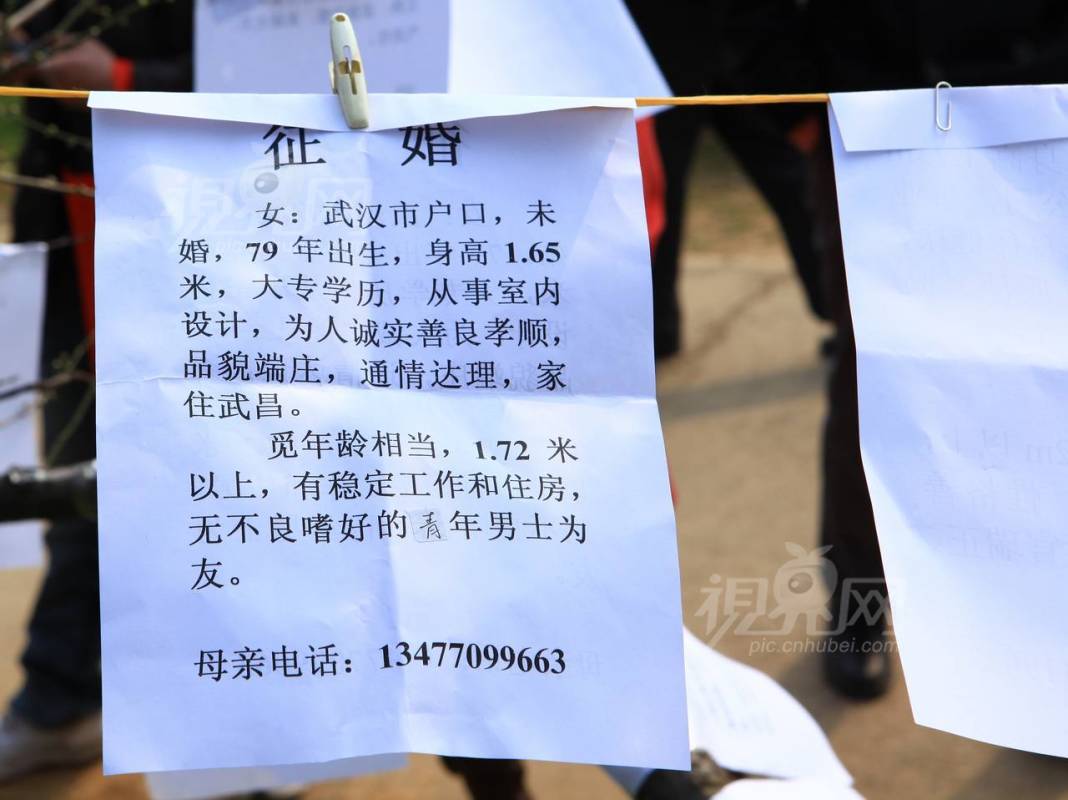 征 婚
女：武汉市户口，未
婚，79 年出生，身高 1.65
米，大专学历，从事室内
设计，为人诚实善良孝顺，
品貌端庄，通情达理，家
住武昌。
觅年龄相当，1.72 米
以上，有稳定工作和住房，
无不良嗜好的青年男士为
友。
母亲电话：13477099663
視界网
pic.cnhubei.com